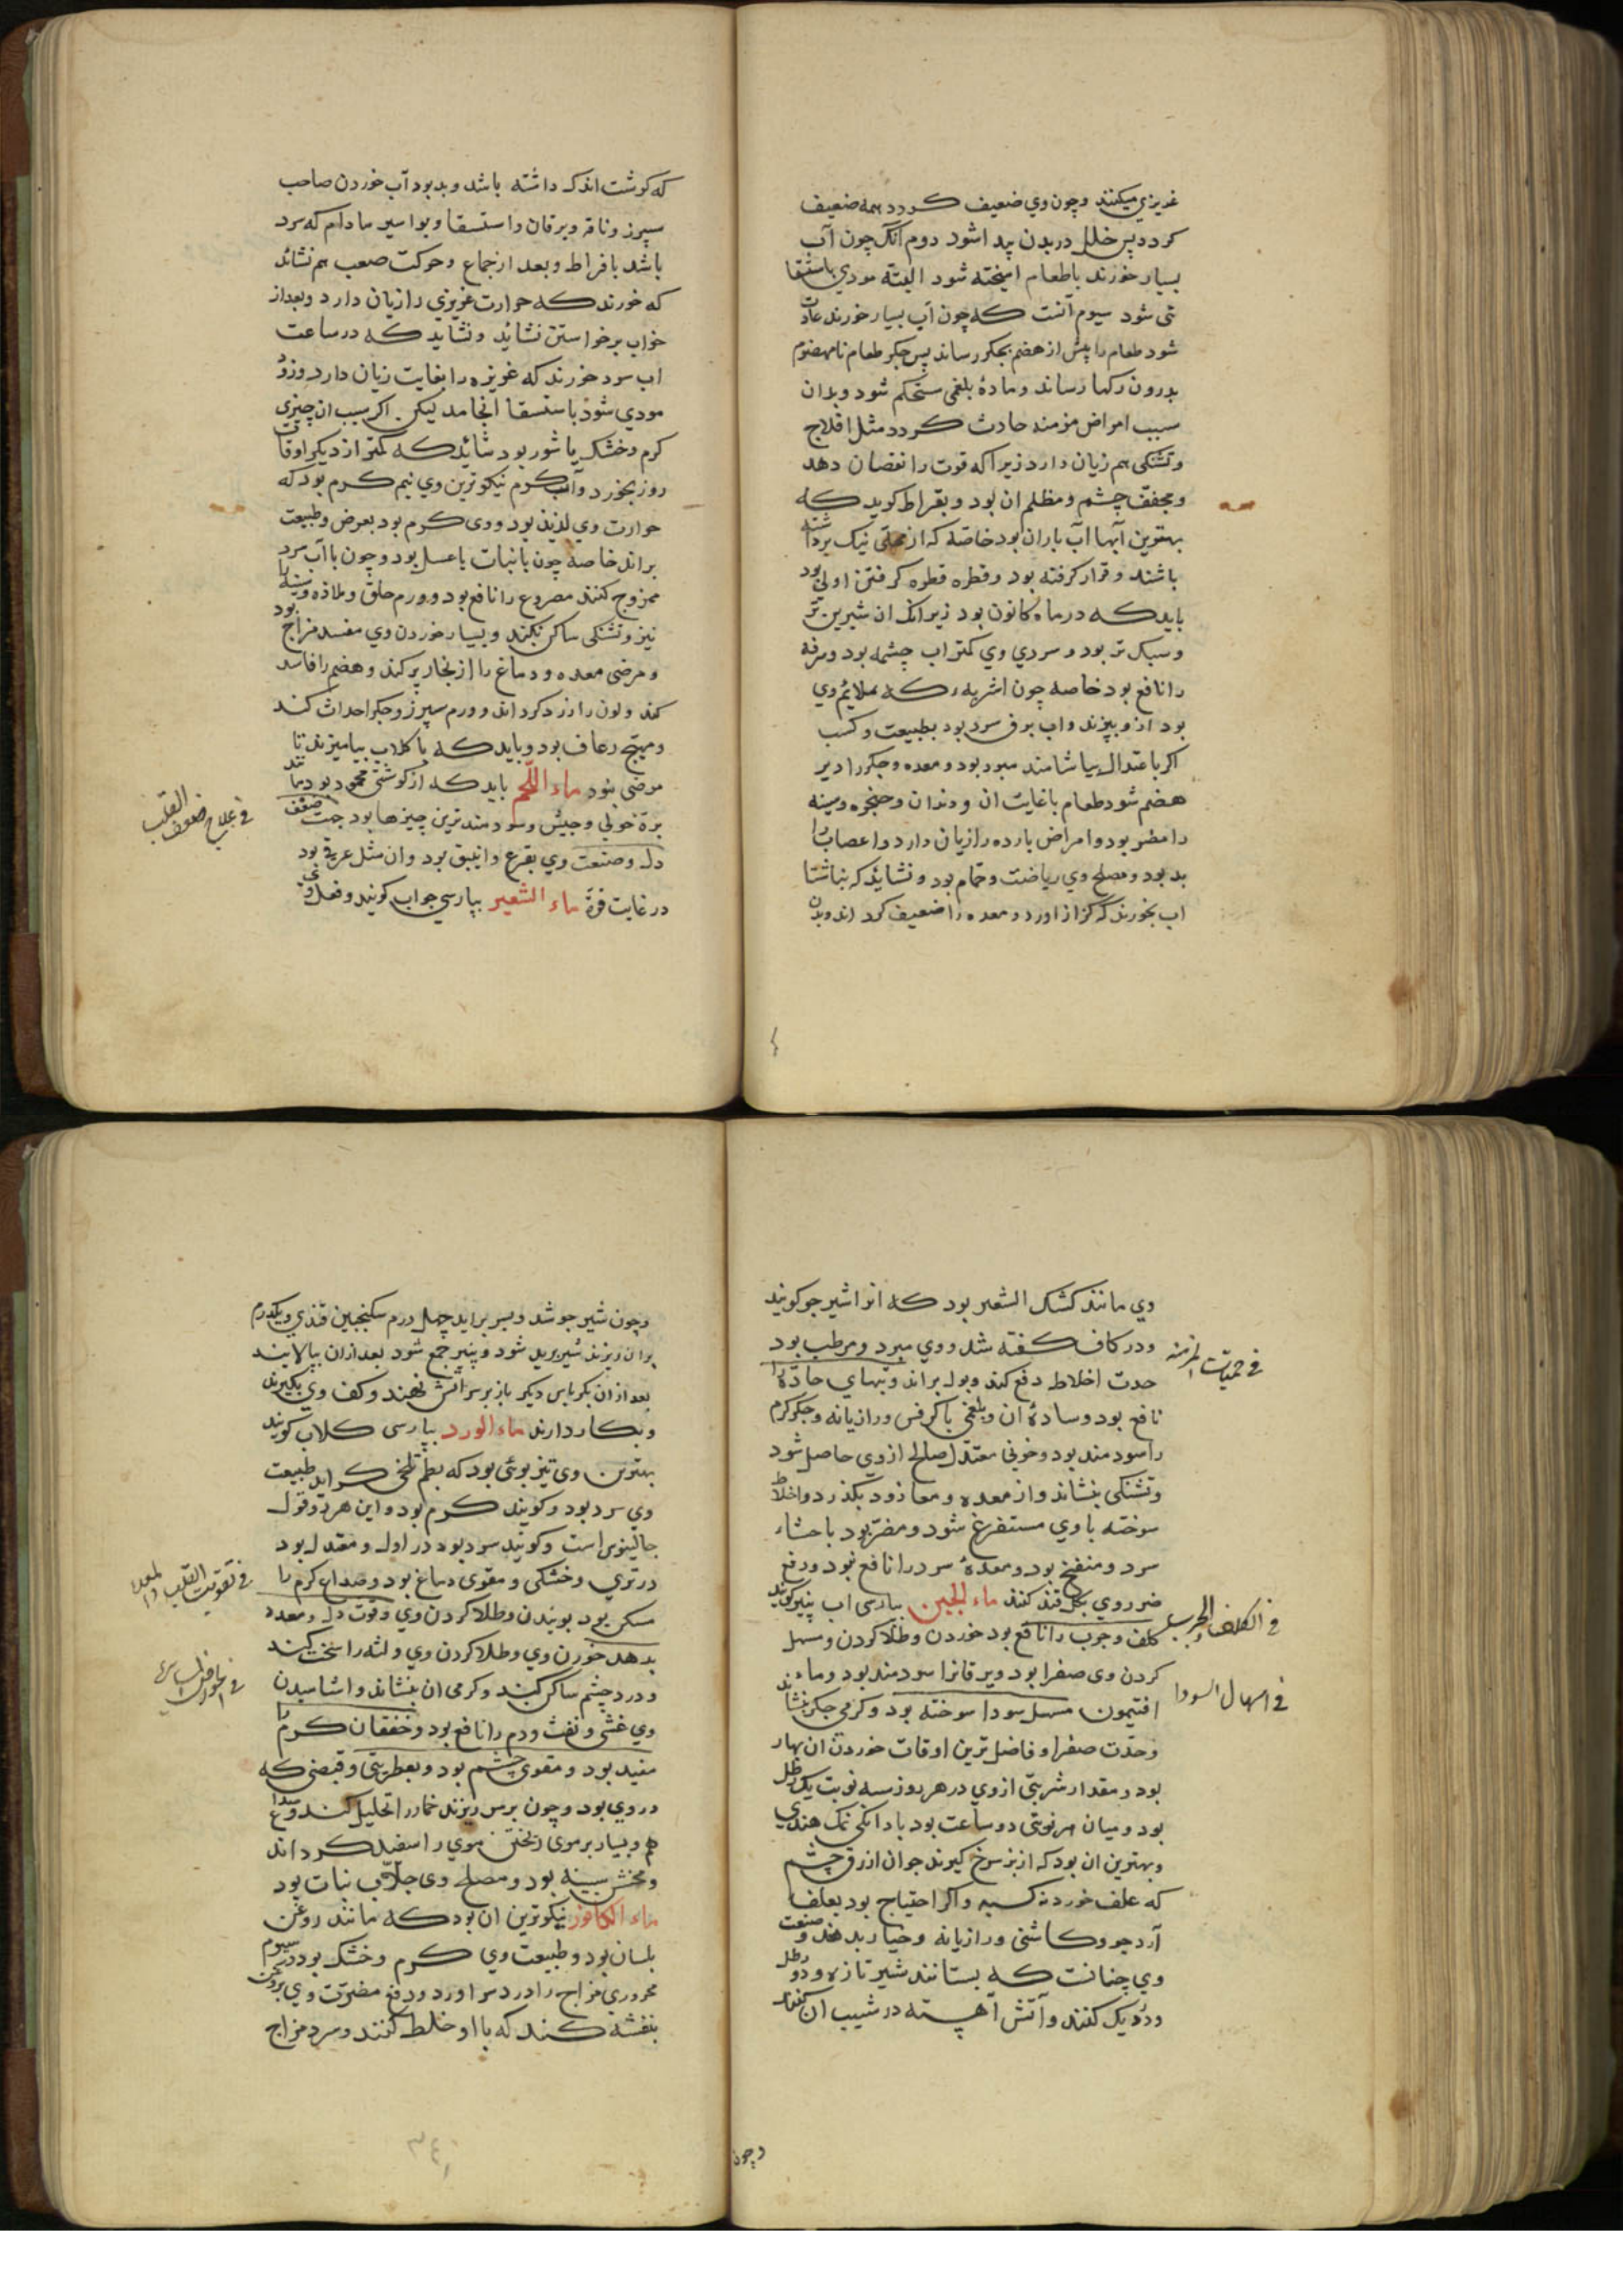 غریزی میکنند وچون وی ضعیف کردد همه ضعیف
کردد پس خلل در بدن پیدا شود دوم آنک چون آب
بسیار خورند باطعام امیخته شود البته مودی باستسقا
شود سیوم آنست که چون آب بسیار خورند عادت
شود طعام را پیش از هضم بجکر رساند پس جکر طعام نامهضوم
بدرون رکها رساند ومادۀ بلغمی مستحکم شود وبدان
سبب امراض مزمنه حادث کردد مثل افلاج
وتشنکی هم زیان دارد زیرا که قوت را نقصان دهد
ومجفف چشم ومظلم ان بود وبقراط کوید که
بهترین آبها آب باران بود خاصه که از محلی نیک برداشته
باشند وقرار کرفته بود وقطره قطره کرفتن اولی بود
باید که در ماه کانون بود زیرا انک ان شیرین تر
وسبک تر بود وسردی وی کمتر اب چشمه بود وسرفه
را نافع بود خاصه چون اشربه که ملایم وی
بود ازو بپزند واب برف سرد بود بطبیعت وکسب
اکر باعتدال بیاشامند مبرد بود ومعده وجکر را دیر
هضم شود طعام باغایت ان ودندان وحنجره وسینه
را مضر بود وامراض بارده را زیان دارد واعصاب را
بد بود ومصلح وی ریاضت وحمام بود ونشاید که بناشتا
اب بخورند که کزاز اورد ومعده را ضعیف کرداند وبدن
که کوشت اندک داشته باشد وبد بود آب خوردن صاحب
سپرز وناقه ویرقان واستسقا وبواسیر مادام که سرد
باشد بافراط وبعد از جماع وحرکت صعب هم نشاید
که خورند که حرارت غریزی را زیان دارد وبعد از
خواب برخواستن نشاید ونشاید که در ساعت
اب سرد خورند که غریزه را بغایت زیان دارد وزود
مودی شود باستسقا انجامد لیکن اکر سبب ان چیزی
کرم وخشک یا شور بود شاید که کمتر از دیکر اوقات
روز بخورد وآب کرم نیکوترین وی نیم کرم بود که
حرارت وی لذیذ بود ووی کرم بود بعرض وطبیعت
براند خاصه چون بانبات یا عسل بود وچون با آب سرد
ممزوج کنند مصروع را نافع بود وورم حلق وملازه وسینه را
نیز وتشنکی ساکن نکند وبسیار خوردن وی مفسد مزاج بود
ومرخی معده ودماغ را از بخار پر کند وهضم را فاسد
کند ولون را زرد کرداند وورم سپرز وجکر احداث کند
ومهیج رعاف بود وباید که با کلاب بیامیزند تا
مرخی نبود ماء اللحم باید که از کوشتی محمود بود مانند
برۀ حولی وجبش وسودمندترین چیزها بود جهت ضعف
دل وصنعت وی بقرع وانبیق بود وان مثل عرقی بود
در غایت قوة ماء الشعیر بپارسی جواب کویند وفعل
فی علاج ضعف القلب
وی مانند کشک الشعیر بود که انرا شیر جو کویند
ودر کاف کفته شد ووی مبرد ومرطب بود
حدت اخلاط دفع کند وبول براند وتبهای حاده را
نافع بود وسادۀ ان وبلغمی با کرفس ورازیانه وجکر کرم
را سودمند بود وخونی معتدل صالح از وی حاصل شود
وتشنکی بنشاند واز معده ومعا زود بکذرد واخلاط
سوخته با وی مستفرغ شود ومضر بود باحشاء
سرد ومنفخ بود ومعدۀ سرد را نافع نبود ودفع
ضرر وی بکل قند کنند ماء الجبن بپارسی اب پنیر کویند
کلف وجرب را نافع بود خوردن وطلا کردن ومسهل
کردن وی صفرا بود ویرقانرا سودمند بود وماء
افتیمون مسهل سودا سوخته بود وکرمی جکر بنشاند
وحدت صفرا وفاضل ترین اوقات خوردن ان بهار
بود ومقدار شربتی از وی در هر روز سه نوبت یک رطل
بود ومیان هر نوبتی دو ساعت بود با دانکی نمک هندی
وبهترین ان بود که از بز سرخ کیرند جوان ازرق چشم
که علف خورد نه کسبه واکر احتیاج بود بعلف
آرد جو وکاشنی ورازیانه وخیار بدهند وصنعت
وی چنانست که بستانند شیر تازه دو رطل
ودر دیک کنند وآتش آهسته در شیب ان کنند
فی حمیات المزمنه
فی الکلف والجرب
فی اسهال السودا
وچون
وچون شیر جوشد وبسر براید چهل درم سکنجبین قندی ویکدرم
بران ریزند شیر بریده شود وپنیر جمع شود بعد ازان بپالایند
بعد ازان بکرباس دیکر باز بر سر اتش نهند وکف وی بکیرند
وبکار دارند ماء الورد بپارسی کلاب کویند
بهترین وی تیز بوئی بود که بطعم تلخی کراید طبیعت
وی سرد بود وکویند کرم بود واین هر دو قول
جالینوس است وکویند سرد بود در اول ومعتدل بود
در تری وخشکی ومقوی دماغ بود وصداع کرم را
مسکن بود بوئیدن وطلا کردن وی وقوت دل ومعده
بدهد خوردن وی وطلا کردن وی ولثه را سخت کند
ودرد چشم ساکن کند وکرمی ان بنشاند واشامیدن
وی غشی ونفث ودم را نافع بود وخفقان کرم را
مفید بود ومقوی چشم بود وبعطریتی وقبضی که
در وی بود وچون بر سر ریزند خمار را تحلیل کند وصداع
هم وبسیار بر موی ریختن موی را سفید کرداند
ومخشن سینه بود ومصلح وی جلاب نبات بود
ماء الکافور نیکوترین ان بود که مانند روغن
بلسان بود وطبیعت وی کرم وخشک بود در سیوم
محروری مزاج را درد سر اورد ودفع مضرت وی بروغن
بنفشه کنند که با او خلط کنند وسرد مزاج
فی تقویت القلب والمعده
٣٤١